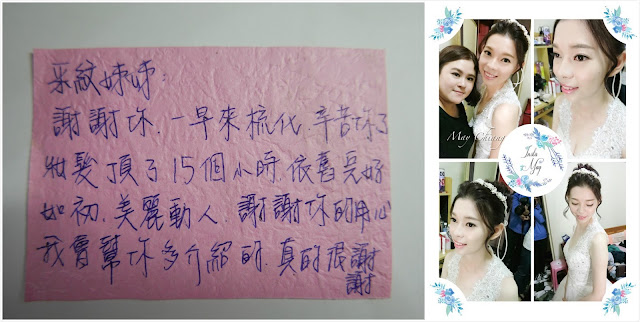 采紋姊姊：
謝謝妳．一早來梳化．辛苦妳了
妝髮頂了15個小時．依舊完好
如初．美麗動人．謝謝妳的用心
我會幫妳多介紹的．真的很謝
謝
May Chiang